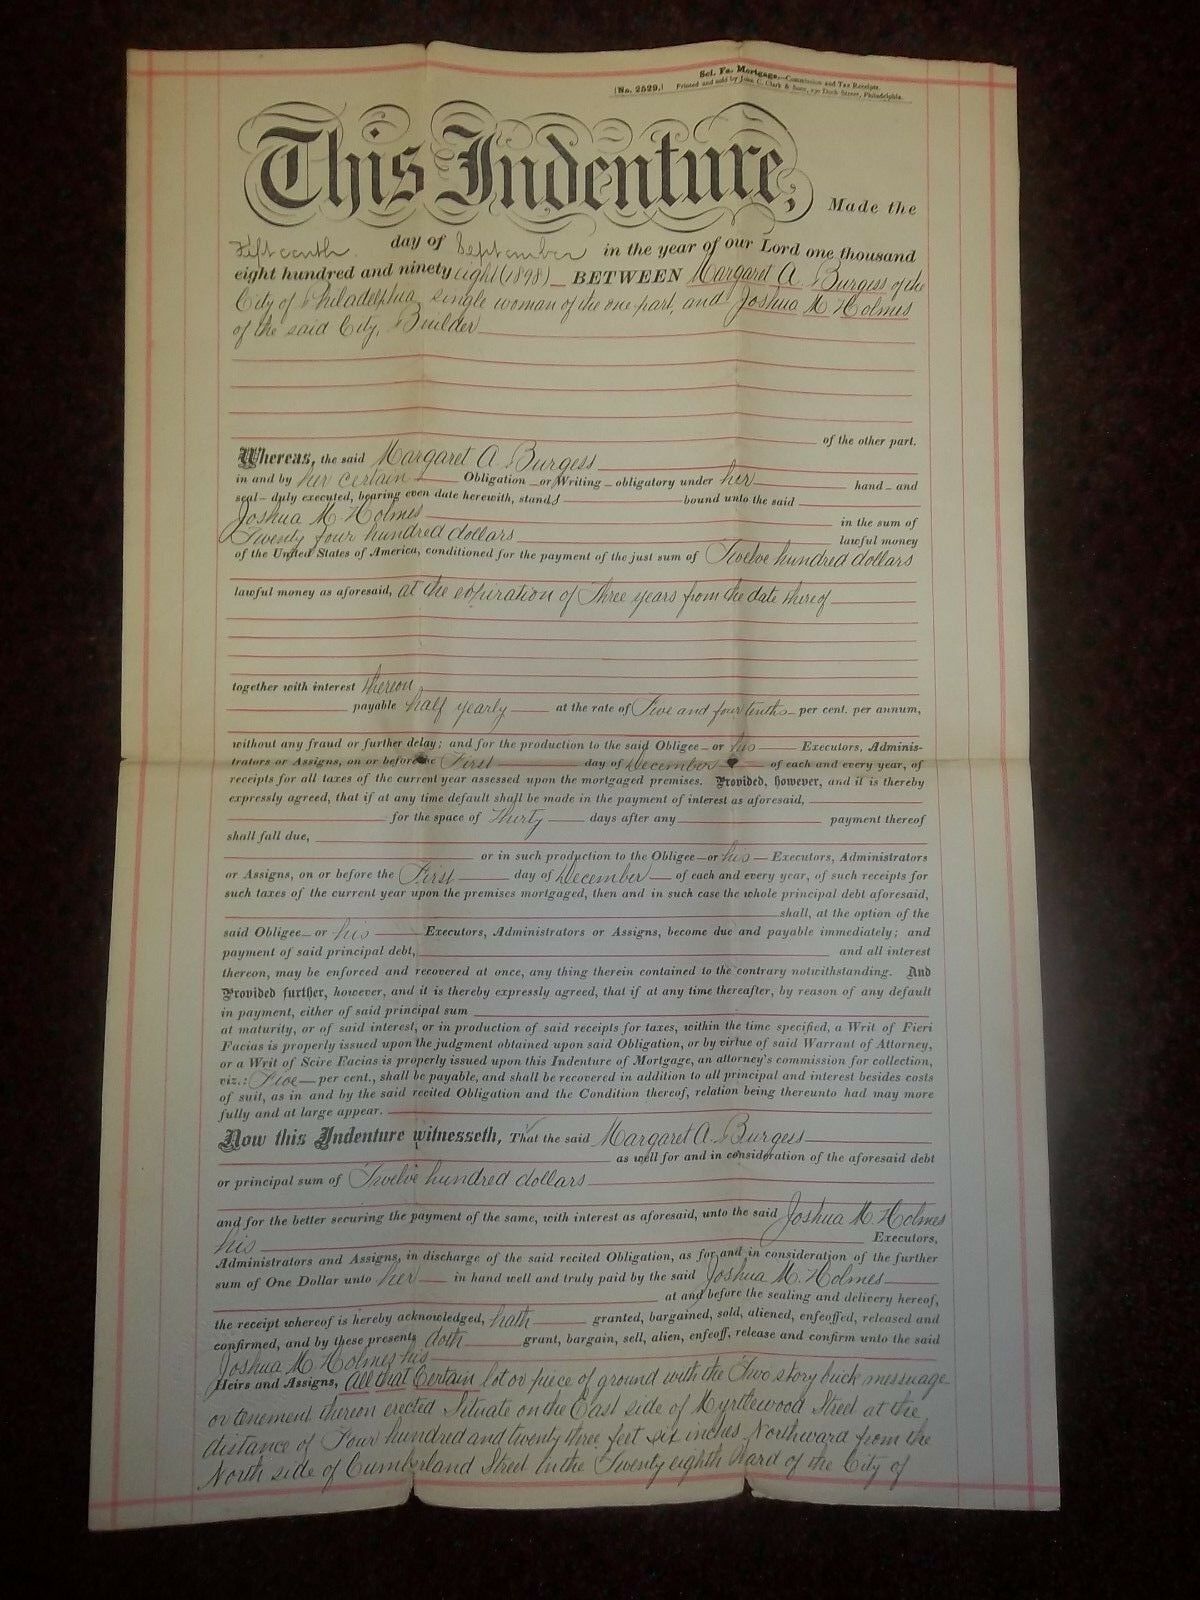 Sci. Fa. Mortgage.—Commission and Tax Receipts.
[No. 2529.] Printed and sold by John C. Clark & Sons, 230 Dock Street, Philadelphia.
This Indenture, Made the
Fifteenth day of September in the year of our Lord one thousand
eight hundred and ninety eight (1898) BETWEEN Margaret A. Burgess of the
City of Philadelphia, single woman of the one part, and Joshua M. Holmes
of the said City, Builder
of the other part.
Whereas, the said Margaret A. Burgess
in and by her certain Obligation or Writing obligatory under her hand and
seal duly executed, bearing even date herewith, stands bound unto the said
Joshua M. Holmes in the sum of
Twenty four hundred dollars lawful money
of the United States of America, conditioned for the payment of the just sum of Twelve hundred dollars
lawful money as aforesaid, at the expiration of Three years from the date thereof
together with interest thereon
payable half yearly at the rate of Five and four tenths per cent. per annum,
without any fraud or further delay; and for the production to the said Obligee or his Executors, Adminis-
trators or Assigns, on or before the First day of December of each and every year, of
receipts for all taxes of the current year assessed upon the mortgaged premises. Provided, however, and it is thereby
expressly agreed, that if at any time default shall be made in the payment of interest as aforesaid,
for the space of Thirty days after any payment thereof
shall fall due,
or in such production to the Obligee or his Executors, Administrators
or Assigns, on or before the First day of December of each and every year, of such receipts for
such taxes of the current year upon the premises mortgaged, then and in such case the whole principal debt aforesaid,
shall, at the option of the
said Obligee or his Executors, Administrators or Assigns, become due and payable immediately; and
payment of said principal debt, and all interest
thereon, may be enforced and recovered at once, any thing therein contained to the contrary notwithstanding. And
Provided further, however, and it is thereby expressly agreed, that if at any time thereafter, by reason of any default
in payment, either of said principal sum
at maturity, or of said interest, or in production of said receipts for taxes, within the time specified, a Writ of Fieri
Facias is properly issued upon the judgment obtained upon said Obligation, or by virtue of said Warrant of Attorney,
or a Writ of Scire Facias is properly issued upon this Indenture of Mortgage, an attorney's commission for collection,
viz.: Five per cent., shall be payable, and shall be recovered in addition to all principal and interest besides costs
of suit, as in and by the said recited Obligation and the Condition thereof, relation being thereunto had may more
fully and at large appear.
Now this Indenture witnesseth, That the said Margaret A. Burgess
as well for and in consideration of the aforesaid debt
or principal sum of Twelve hundred dollars
and for the better securing the payment of the same, with interest as aforesaid, unto the said Joshua M. Holmes
his Executors,
Administrators and Assigns, in discharge of the said recited Obligation, as for and in consideration of the further
sum of One Dollar unto her in hand well and truly paid by the said Joshua M. Holmes
at and before the sealing and delivery hereof,
the receipt whereof is hereby acknowledged, hath granted, bargained, sold, aliened, enfeoffed, released and
confirmed, and by these presents doth grant, bargain, sell, alien, enfeoff, release and confirm unto the said
Joshua M. Holmes his
Heirs and Assigns, All that Certain lot or piece of ground with the Two story brick messuage
or tenement thereon erected Situate on the East side of Myrtlewood Street at the
distance of Four hundred and twenty three feet six inches Northward from the
North side of Cumberland Street In the Twenty eighth Ward of the City of